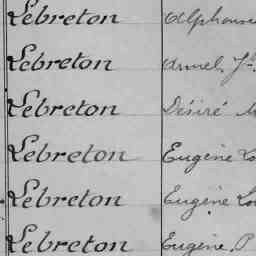 Lebreton Alphonse
Lebreton Armel J
Lebreton Désiré
Lebreton Eugène Lo
Lebreton Eugène Lou
Lebreton Eugène. P